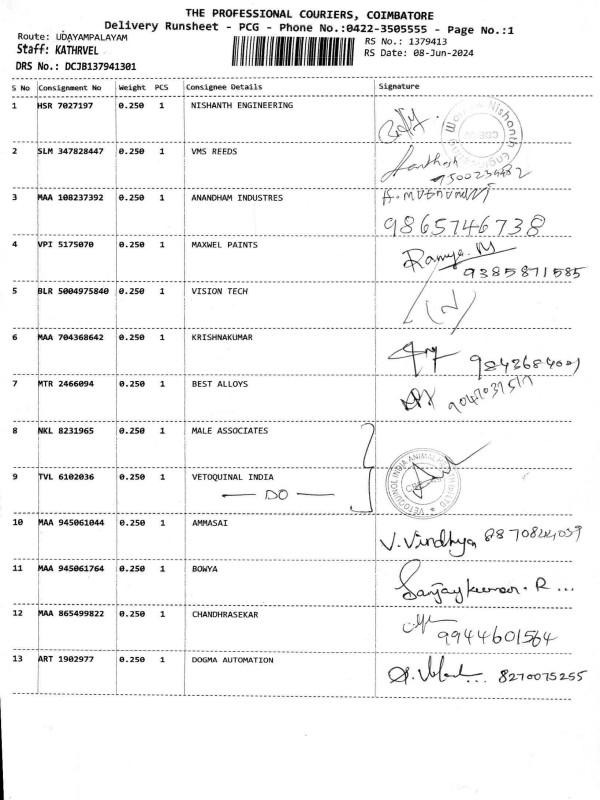 THE PROFESSIONAL COURIERS, COIMBATORE
Delivery Runsheet - PCG - Phone No.:0422-3505555 - Page No.:1
Route: UDAYAMPALAYAM
RS No.: 1379413
Staff: KATHRVEL
RS Date: 08-Jun-2024
DRS No.: DCJB137941301
S No Consignment No Weight PCS Consignee Details Signature
1 HSR 7027197 0.250 1 NISHANTH ENGINEERING
2 SLM 347828447 0.250 1 VMS REEDS
Santhosh
3 MAA 108237392 0.250 1 ANANDHAM INDUSTRES
9865746738
4 VPI 5175070 0.250 1 MAXWEL PAINTS Ramya. M
9385871585
5 BLR 5004975840 0.250 1 VISION TECH
6 MAA 704368642 0.250 1 KRISHNAKUMAR
7 MTR 2466094 0.250 1 BEST ALLOYS
8 NKL 8231965 0.250 1 MALE ASSOCIATES
9 TVL 6102036 0.250 1 VETOQUINAL INDIA
— DO —
10 MAA 945061044 0.250 1 AMMASAI
V. Vindhya
11 MAA 945061764 0.250 1 BOWYA
Sanjaykumar. R ...
12 MAA 865499822 0.250 1 CHANDHRASEKAR
9944601564
13 ART 1902977 0.250 1 DOGMA AUTOMATION
8270075255